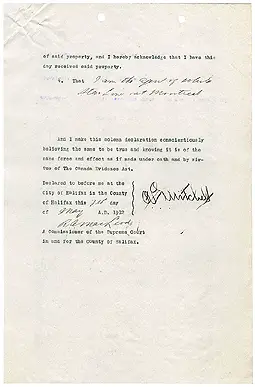 of said property, and I hereby acknowledge that I have this
day received said property.
4. That I am the agent of White
Star Line at Montreal
And I make this solemn declaration conscientiously
believing the same to be true and knowing it is of the
same force and effect as if made under oath and by vir-
tue of The Canada Evidence Act.
Declared to before me at the
City of Halifax in the County
of Halifax this 1st day
of May A.D. 1912
Mitchell
A Commissioner of the Supreme Court
in and for the County of Halifax.